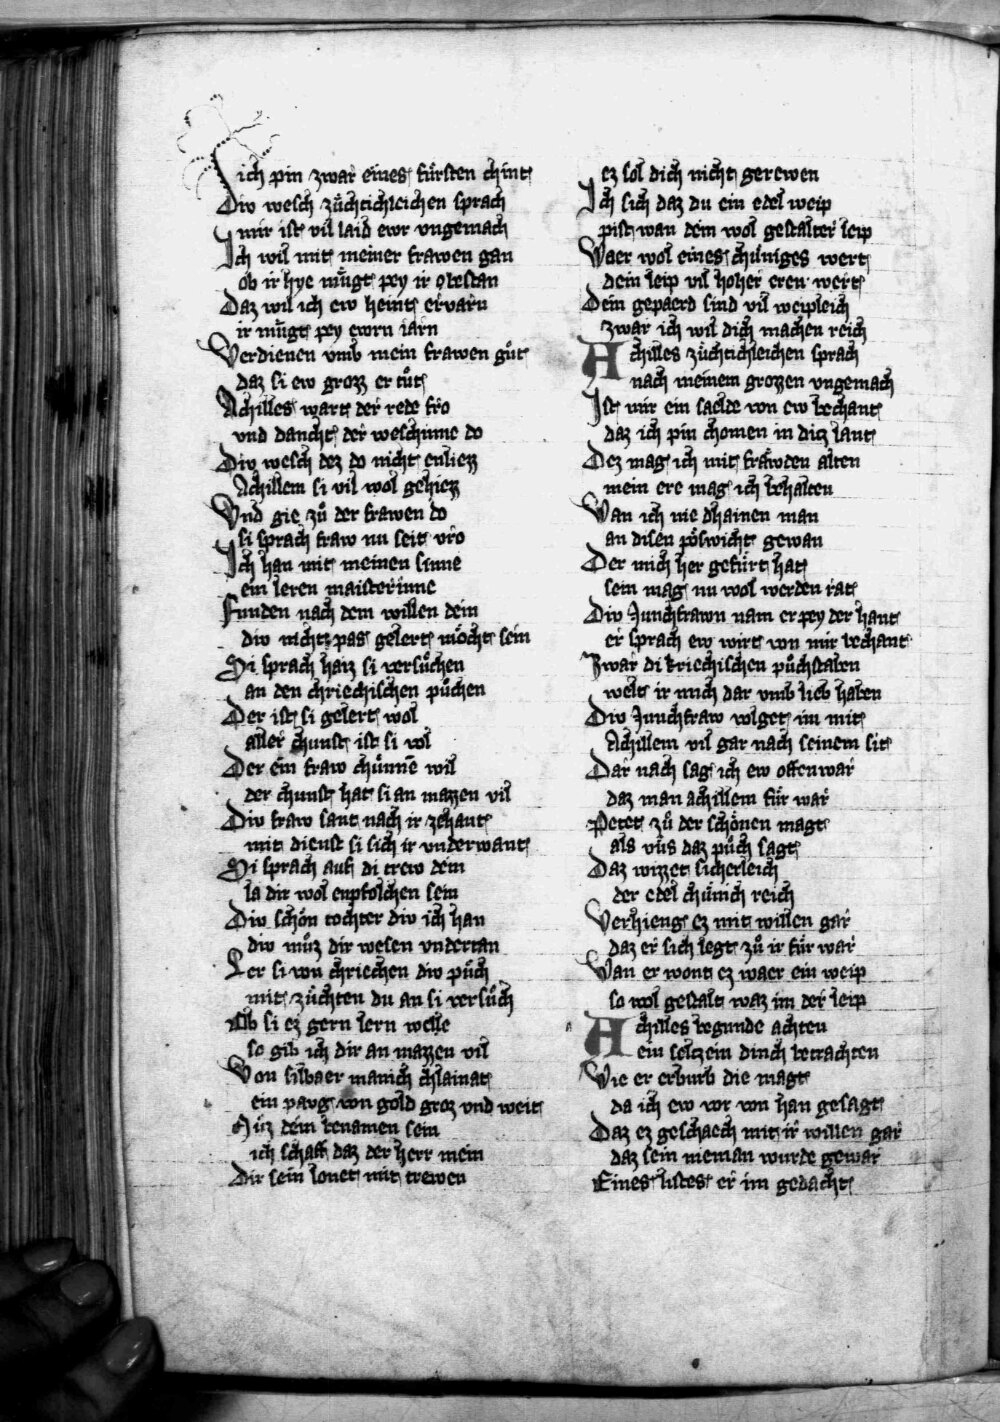 ich pin zwar eines fürsten chint
Div wesch züchtichleichen sprach
mir ist vil laid ewr vngemach
Ich wil mit meiner frawen gan
ob ir hye mügt pey ir bestan
Daz wil ich ew heint ervarn
ir mügt pey ewrn iarn
Verdienen vmb mein frawen gůt
daz si ew grozz er tůt
Achilles wart der rede fro
vnd daucht der weschinne do
Div wesch dez do nicht enliezz
Achillem si vil wol gehiezz
Vnd gie zů der frawen do
si sprach fraw nu seit vro
Ich han mit meinen sinne
ein leren maisterinne
Funden nach dem willen dein
div nicht pas gelert möcht sein
Si sprach haiz si versůchen
an den chriechischen půchen
Der ist si gelert wol
aller chunst ist si vol
Der ein fraw chünne wil
der chunst hat si an mazzen vil
Div fraw sant nach ir zehant
mit dienst si sich ir vnderwant
Si sprach auf di trew dein
la dir wol enpfolchen sein
Div schön tochter div ich han
div můz dir wesen vndertan
Ler si von chriechen div půch
mit züchten du an si versůch
Ob si ez gern lern welle
so gib ich dir an mazzen vil
Von silbaer manich chlainat
ein paug von gold groz vnd weit
Auz dem benamen sein
ich schaff daz der herr mein
Dir sein lonet mit trewen
ez sol dich nicht gerewen
Ich sich daz du ein edel weip
pist wan dem wol gestalter leip
Waer wol eines chüniges wert
dein leip vil hoher eren wert
Dein gepaerd sind vil weipleich
zwar ich wil dich machen reich
Achilles züchtichleichen sprach
nach meinem grozzen vngemach
Ist mir ein saelde von ew bechant
daz ich pin chomen in ditz lant
Dez mag ich mit fräwden alten
mein ere mag ich behalten
Wan ich nie dhainen man
an disen pöswicht gewan
Der mich her gefürt hat
sein mag nu wol werden rat
Div Junchfrawn nam er pey der hant
er sprach ew wirt von mir bechant
Zwar di kriechischen půchstaben
welt ir mich dar vmb lieb haben
Div Junchfraw volget im mit
Achillem vil gar nach seinem sit
Dar nach sag ich ew offenwar
daz man achillem für war
Petet zů der schönen magt
als vns daz půch sagt
Daz wizzet sicherleich
der edel chünich reich
Verhieng ez mit willen gar
daz er sich legt zů ir für war
Wan er wont ez waer ein weip
so wol gestalt waz im der leip
Achilles begunde achten
ein seltzein dinch betrachten
Wie er erburb die magt
da ich ew vor von han gesagt
Daz ez geschaech mit ir willen gar
daz sein nieman wurde gewar
Eines listes er im gedacht